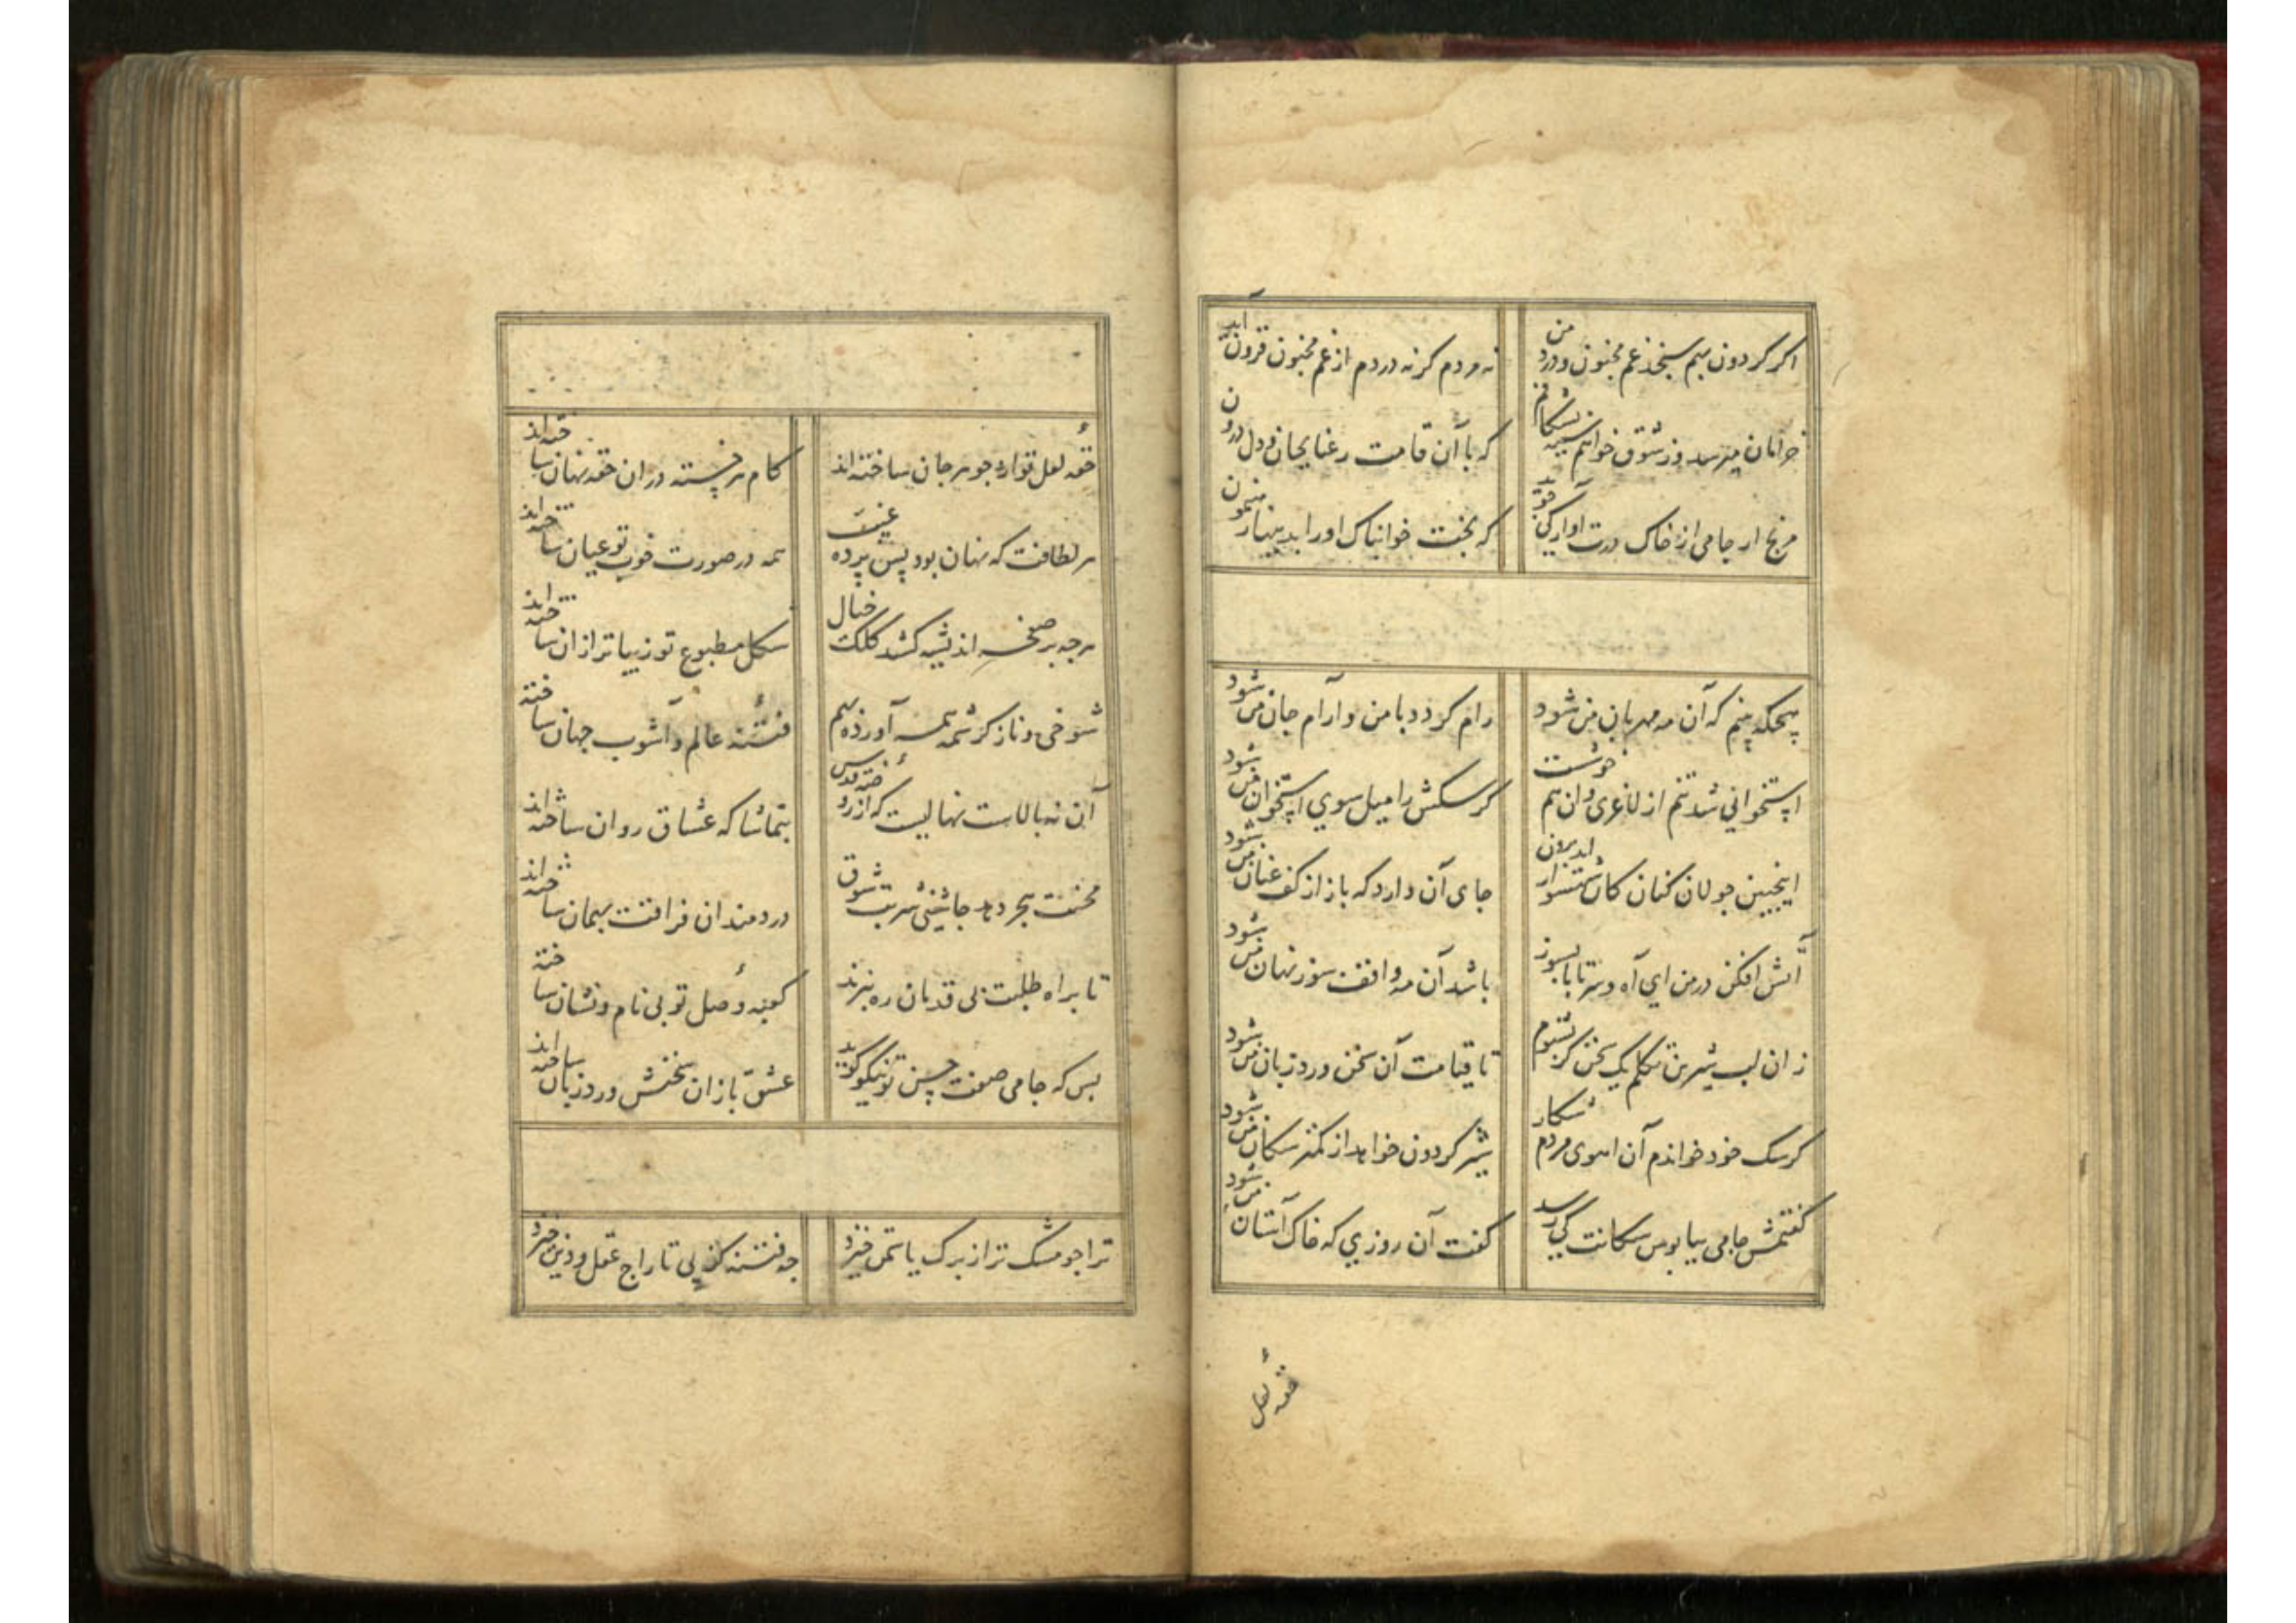 اکر کردون بهم سنجد غم مجنون و درد من
نه مردم کر نه دردم از غم مجنون فزون اید
خرامان میرسد وز شوق خواهم سینه بشکافم
که با آن قامت رعنا بجان و دل درون
مرنج ار جامی از خاک درت آوارکی جوید
که بخت خوابناک اورا بدینها رهنمون
رام کردد با من و آرام جان من شود
استخوانی شد تنم از لاغری وان هم خوشست
کر سکش را میل سوی استخوان من شود
اینچنین جولان کنان کان شهسوار اید برون
جای آن دارد که باز از کف عنان من شود
آتش افکن در من ای آه و سرتاپا بسوز
باشد آن مه واقف سوز نهان من شود
زان لب شیرین تکلم یک سخن کر بشنوم
تا قیامت آن سخن ورد زبان من شود
کر سک خود خواندم آن اهوی مردم شکار
شیر کردون خواهد از کمتر سکان من شود
کفتمش جامی بپابوس سکانت کی رسد
کفت آن روزی که خاک آستان من شود
حقه لعل
حقه لعل تو از جوهر جان ساخته اند
کام هر خسته در ان حقه نهان ساخته اند
هر لطافت که نهان بود پس پرده غیب
همه در صورت خوب تو عیان ساخته اند
هرچه بر صفحه اندیشه کشد کلک خیال
شکل مطبوع تو زیباتر ازان ساخته اند
شوخی و ناز کرشمه همه آورده بهم
فتنه عالم و آشوب جهان ساخته
آن نه بالاست نهالیست که از روضه قدس
بتماشا که عشاق روان ساخته اند
محنت هجر دهد چاشنی شربت شوق
دردمندان فراقت بهمان ساخته اند
تا براه طلبت بی قدمان ره نبرند
کعبه وصل تو بی نام و نشان ساخته
بس که جامی صفت حسن تو نیکو کوید
عشق بازان سخنش ورد زبان ساخته اند
ترا چو مشک تر از برک یاسمن خیزد
چه فتنه کز پی تاراج عقل و دین خیزد